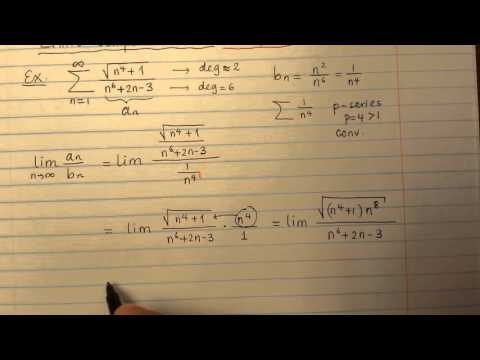 Ex. ∑_{n=1}^{∞} √(n⁴+1) / (n⁶+2n-3) → deg ≈ 2 → deg = 6
a_n
b_n = n²/n⁶ = 1/n⁴
∑ 1/n⁴ p-series p=4>1 conv.
lim_{n→∞} a_n/b_n = lim (√(n⁴+1) / (n⁶+2n-3)) / (1/n⁴)
= lim √(n⁴+1) / (n⁶+2n-3) · n⁴/1 = lim √((n⁴+1)n⁸) / (n⁶+2n-3)